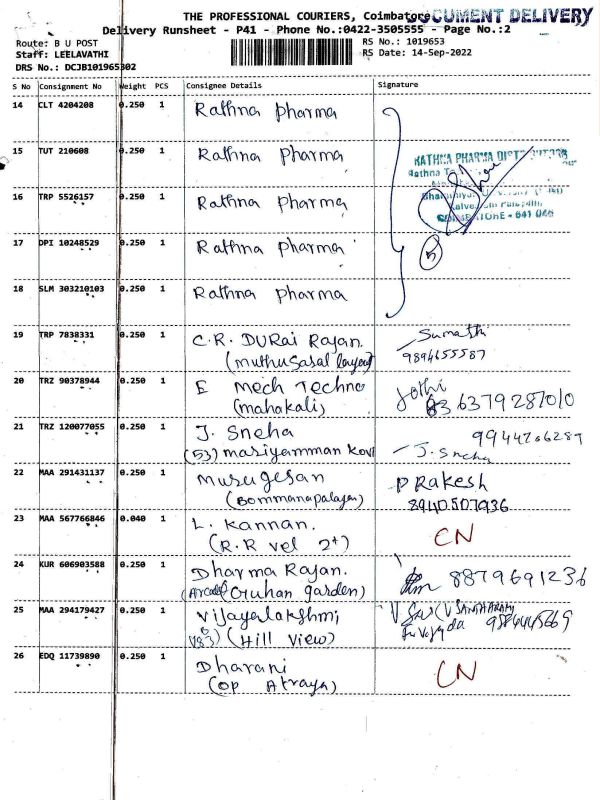 THE PROFESSIONAL COURIERS, Coimbatore
DOCUMENT DELIVERY
Delivery Runsheet - P41 - Phone No.:0422-3505555 - Page No.:2
Route: B U POST
Staff: LEELAVATHI
DRS No.: DCJB101965302
RS No.: 1019653
RS Date: 14-Sep-2022
S No Consignment No Weight PCS Consignee Details Signature
14 CLT 4204208 0.250 1 Rathna pharma
15 TUT 210608 0.250 1 Rathna pharma
RATHNA PHARMA DISTRIBUTORS
Rathna
16 TRP 5526157 0.250 1 Rathna pharma
COIMBATORE - 641 046
17 DPI 10248529 0.250 1 Rathna pharma
5
18 SLM 303210103 0.250 1 Rathna pharma
19 TRP 7838331 0.250 1 C.R. DURai Rajan. Sumathi
(muthugasal layout) 9894655587
20 TRZ 90378944 0.250 1 E Mech Techno Jothi
(mahakali) 6379287010
21 TRZ 120077055 0.250 1 J. Sneha 9944706287
(53) mariyamman Kovi J. Sneha
22 MAA 291431137 0.250 1 Murugesan PRakesh
(Bommanapalayam) 8940507936
23 MAA 567766846 0.040 1 L. Kannan. CN
(R.R vel 2+)
24 KUR 606903588 0.250 1 Dharma Rajan. 8879691236
Guhan garden)
25 MAA 294179427 0.250 1 Vijayalakshmi
(Hill View) 9884445669
26 EDQ 11739890 0.250 1 Dharani CN
(op Atraya)